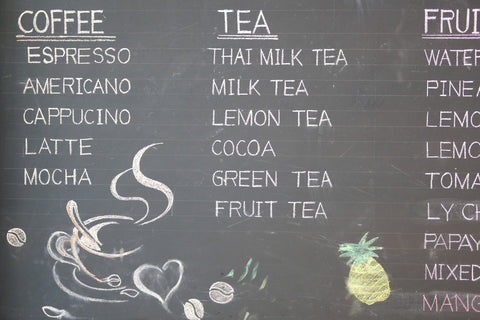 COFFEE
ESPRESSO
AMERICANO
CAPPUCINO
LATTE
MOCHA
TEA
THAI MILK TEA
MILK TEA
LEMON TEA
COCOA
GREEN TEA
FRUIT TEA
FRUI
WATE
PINE
LEMO
LEMO
TOMA
LY CH
PAPAY
MIXED
MANG